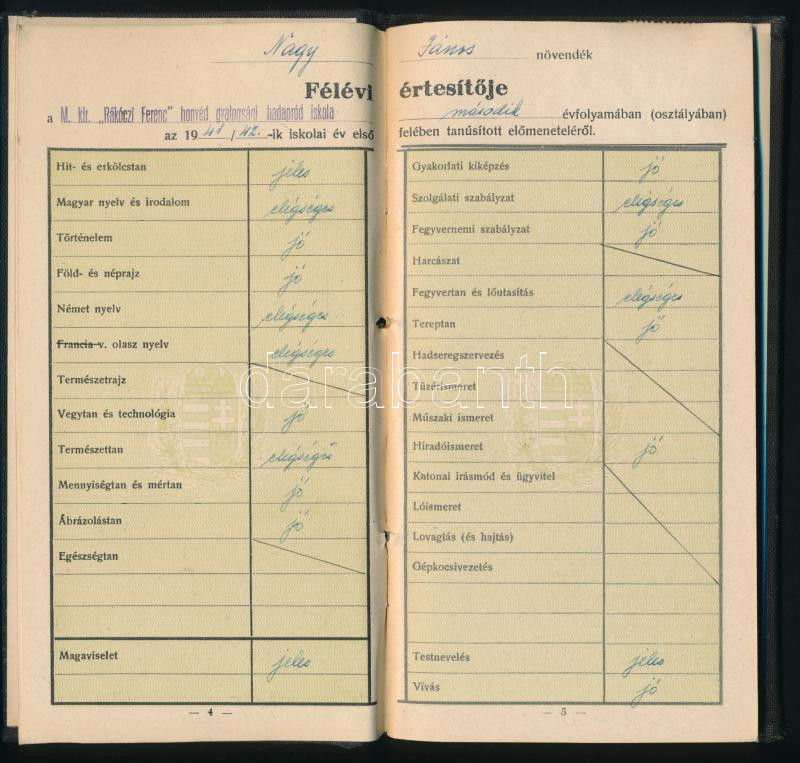 Nagy János növendék
Félévi értesítője
a M. kir. „Rákóczi Ferenc" honvéd gyalogsági hadapród iskola második évfolyamában (osztályában)
az 1941/42.-ik iskolai év első felében tanúsított előmeneteléről.
Hit- és erkölcstan jeles
Magyar nyelv és irodalom elégséges
Történelem jó
Föld- és néprajz jó
Német nyelv elégséges
Francia v. olasz nyelv elégséges
Természetrajz
Vegytan és technológia jó
Természettan elégséges
Mennyiségtan és mértan jó
Ábrázolástan jó
Egészségtan
Magaviselet jeles
— 4 —
Gyakorlati kiképzés jó
Szolgálati szabályzat elégséges
Fegyvernemi szabályzat jó
Harcászat
Fegyvertan és lőutasítás elégséges
Tereptan jó
Hadseregszervezés
Tüzérismeret
Műszaki ismeret
Híradóismeret jó
Katonai írásmód és ügyvitel
Lóismeret
Lovaglás (és hajtás)
Gépkocsivezetés
Testnevelés jeles
Vívás jó
— 5 —
darabanth